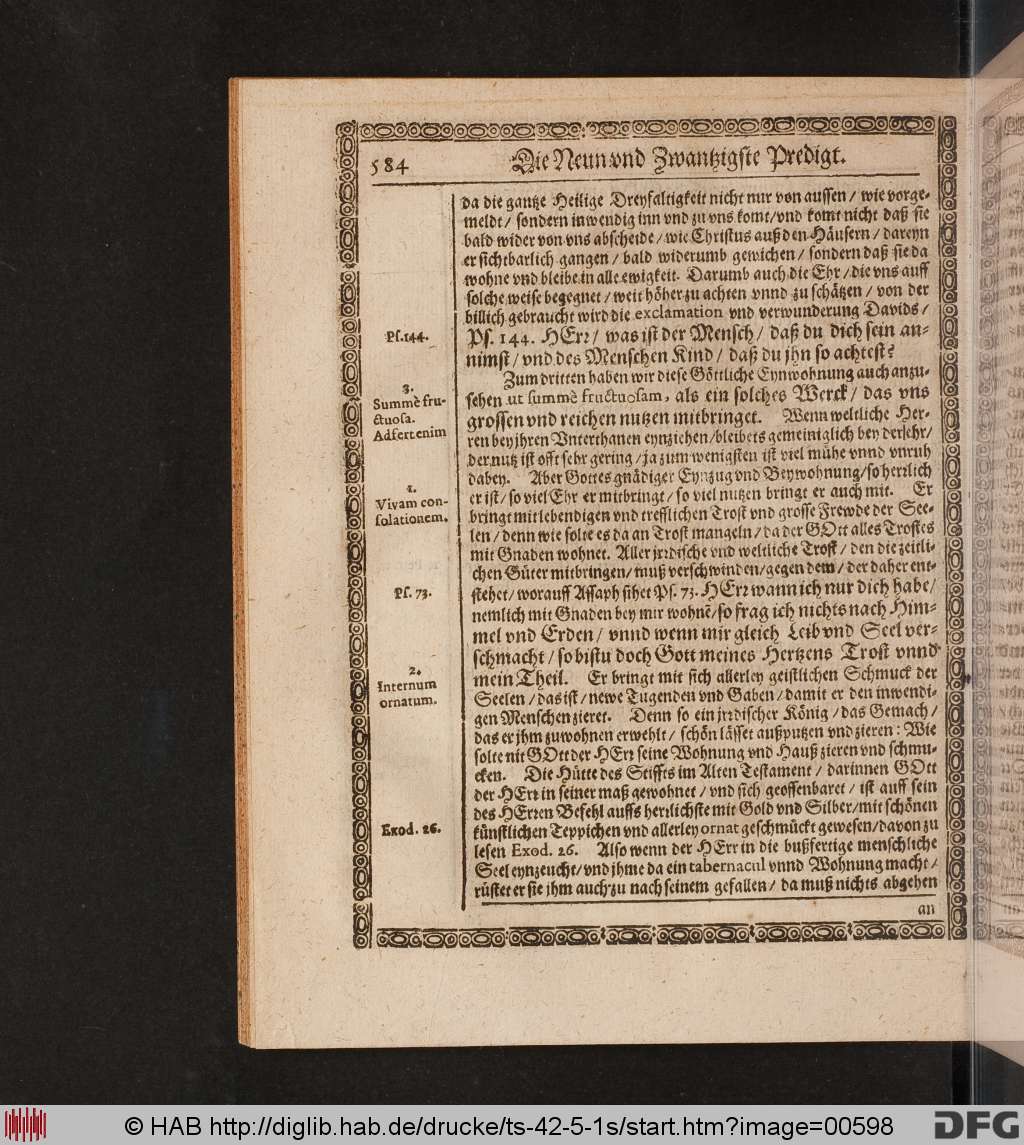 584
Die Neun vnd Zwantzigste Predigt.
da die gantze Heilige Dreyfaltigkeit nicht nur von aussen / wie vorge-
meldt / sondern inwendig inn vnd zu vns komt / vnd komt nicht daß sie
bald wider von vns abscheide / wie Christus auß den Häusern / dareyn
er sichtbarlich gangen / bald widerumb gewichen / sondern daß sie da
wohne vnd bleibe in alle ewigkeit. Darumb auch die Ehr / die vns auff
solche weise begegnet / weit höher zu achten vnnd zu schätzen / von der
billich gebraucht wird die exclamation vnd verwunderung Davids /
Ps. 144. HErr / was ist der Mensch / daß du dich sein an-
nimst / vnd des Menschen Kind / daß du jhn so achtest?
Zum dritten haben wir diese Göttliche Eynwohnung auch anzu-
sehen ut summè fructuosam, als ein solches Werck / das vns
grossen vnd reichen nutzen mitbringet. Wenn weltliche Her-
ren bey jhren Vnterthanen eynziehen / bleibets gemeiniglich bey der ehr /
der nutz ist offt sehr gering / ja zum wenigsten ist viel mühe vnnd vnruh
dabey. Aber Gottes gnädiger Eynzug vnd Beywohnung / so herrlich
er ist / so viel Ehr er mitbringt / so viel nutzen bringt er auch mit. Er
bringt mit lebendigen vnd trefflichen Trost vnd grosse Frewde der See-
len / denn wie solte es da an Trost mangeln / da der GOtt alles Trostes
mit Gnaden wohnet. Aller jrrdische vnd weltliche Trost / den die zeitli-
chen Güter mitbringen / muß verschwinden / gegen dem / der daher ent-
stehet / worauff Assaph sihet Ps. 73. HErr wann ich nur dich habe /
nemlich mit Gnaden bey mir wohnē / so frag ich nichts nach Him-
mel vnd Erden / vnnd wenn mir gleich Leib vnd Seel ver-
schmacht / so bistu doch Gott meines Hertzens Trost vnnd
mein Theil. Er bringt mit sich allerley geistlichen Schmuck der
Seelen / das ist / newe Tugenden vnd Gaben / damit er den inwendi-
gen Menschen zieret. Denn so ein jrrdischer König / das Gemach /
das er jhm zuwohnen erwehlt / schön lässet außputzen vnd zieren: Wie
solte nit GOtt der HErr seine Wohnung vnd Hauß zieren vnd schmu-
cken. Die Hütte des Stiffts im Alten Testament / darinnen GOtt
der HErr in seiner maß gewohnet / vnd sich geoffenbaret / ist auff sein
des HErren Befehl auffs herrlichste mit Gold vnd Silber / mit schönen
künstlichen Teppichen vnd allerley ornat geschmückt gewesen / davon zu
lesen Exod. 26. Also wenn der HErr in die bußfertige menschliche
Seel eynzeucht / vnd jhme da ein tabernacul vnnd Wohnung macht /
rüstet er sie jhm auch zu nach seinem gefallen / da muß nichts abgehen
an
Ps. 144.
3.
Summè fru-
ctuosa.
Adfert enim
1.
Vivam con-
solationem.
Ps. 73.
2.
Internum
ornatum.
Exod. 26.
© HAB http://diglib.hab.de/drucke/ts-42-5-1s/start.htm?image=00598
DFG